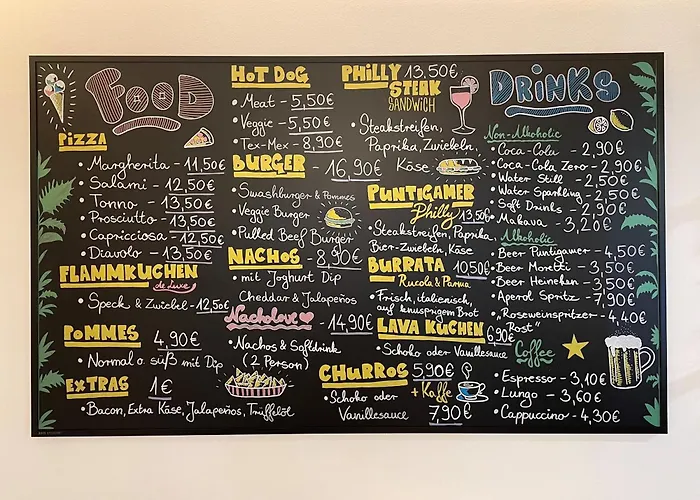 FOOD
PiZZA
• Margherita - 11,50€
• Salami - 12,50€
• Tonno - 13,50€
• Prosciutto - 13,50€
• Capricciosa - 12,50€
• Diavolo - 13,50€
FLAMMKUCHEN
de Luxe
• Speck & Zwiebel - 12,50€
POMMES 4,90€
• Normal o. süß mit Dip
EXTRAS 1€
• Bacon, Extra Käse, Jalapeños, Trüffelöl
HOT DOG
• Meat - 5,50€
• Veggie - 5,50€
• Tex-Mex - 8,90€
BURGER 16,90€
• Swashburger & Pommes
• Veggie Burger
• Pulled Beef Burger
NACHOS - 8,90€
• mit Joghurt Dip
Cheddar & Jalapeños
Nacholove - 14,90€
• Nachos & Softdrink
(2 Person)
PHILLY 13,50€
STEAK
SANDWiCH
• Steakstreifen,
Paprika, Zwiebeln,
Käse
PUNTIGAMER
Philly 13,50€
• Steakstreifen, Paprika
Bier-Zwiebeln, Käse
BURRATA 10,50€
Rucola & Parma
• Frisch, italienisch,
auf knusprigem Brot
LAVA KÜCHEN 6,90€
• Schoko oder Vanillesauce
CHURROS 5,90€
• Schoko oder + Kaffe
Vanillesauce 7,90€
DRiNKS
Non-Alkoholic
• Coca-Cola - 2,90€
• Coca-Cola Zero - 2,90€
• Water Still - 2,50€
• Water Sparkling - 2,50€
• Soft Drinks - 2,90€
• Makava - 3,20€
Alkoholic
• Beer Puntigamer - 4,50€
• Beer Moretti - 3,50€
• Beer Heineken - 3,50€
• Aperol Spritz - 7,90€
• "Roseweinspritzer - 4,40€
Rost"
Coffee
• Espresso - 3,10€
• Lungo - 3,60€
• Cappuccino - 4,30€